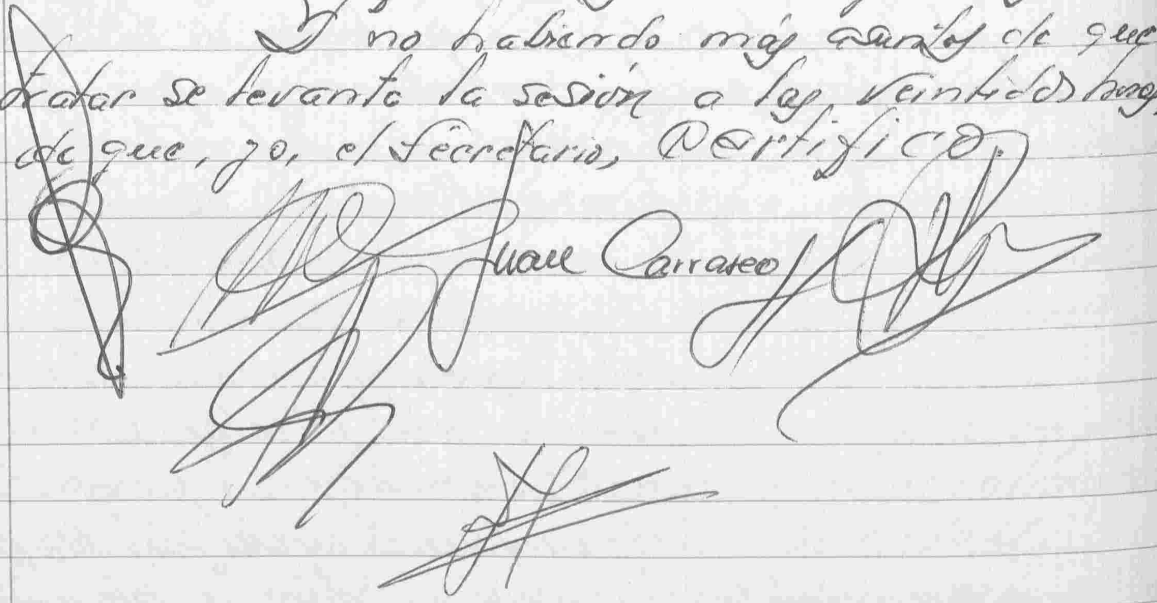 Y no habiendo más asuntos de que
tratar se levanta la sesión a las veintidos horas,
de que, yo, el Secretario, Certifico.
Juan Carrasco